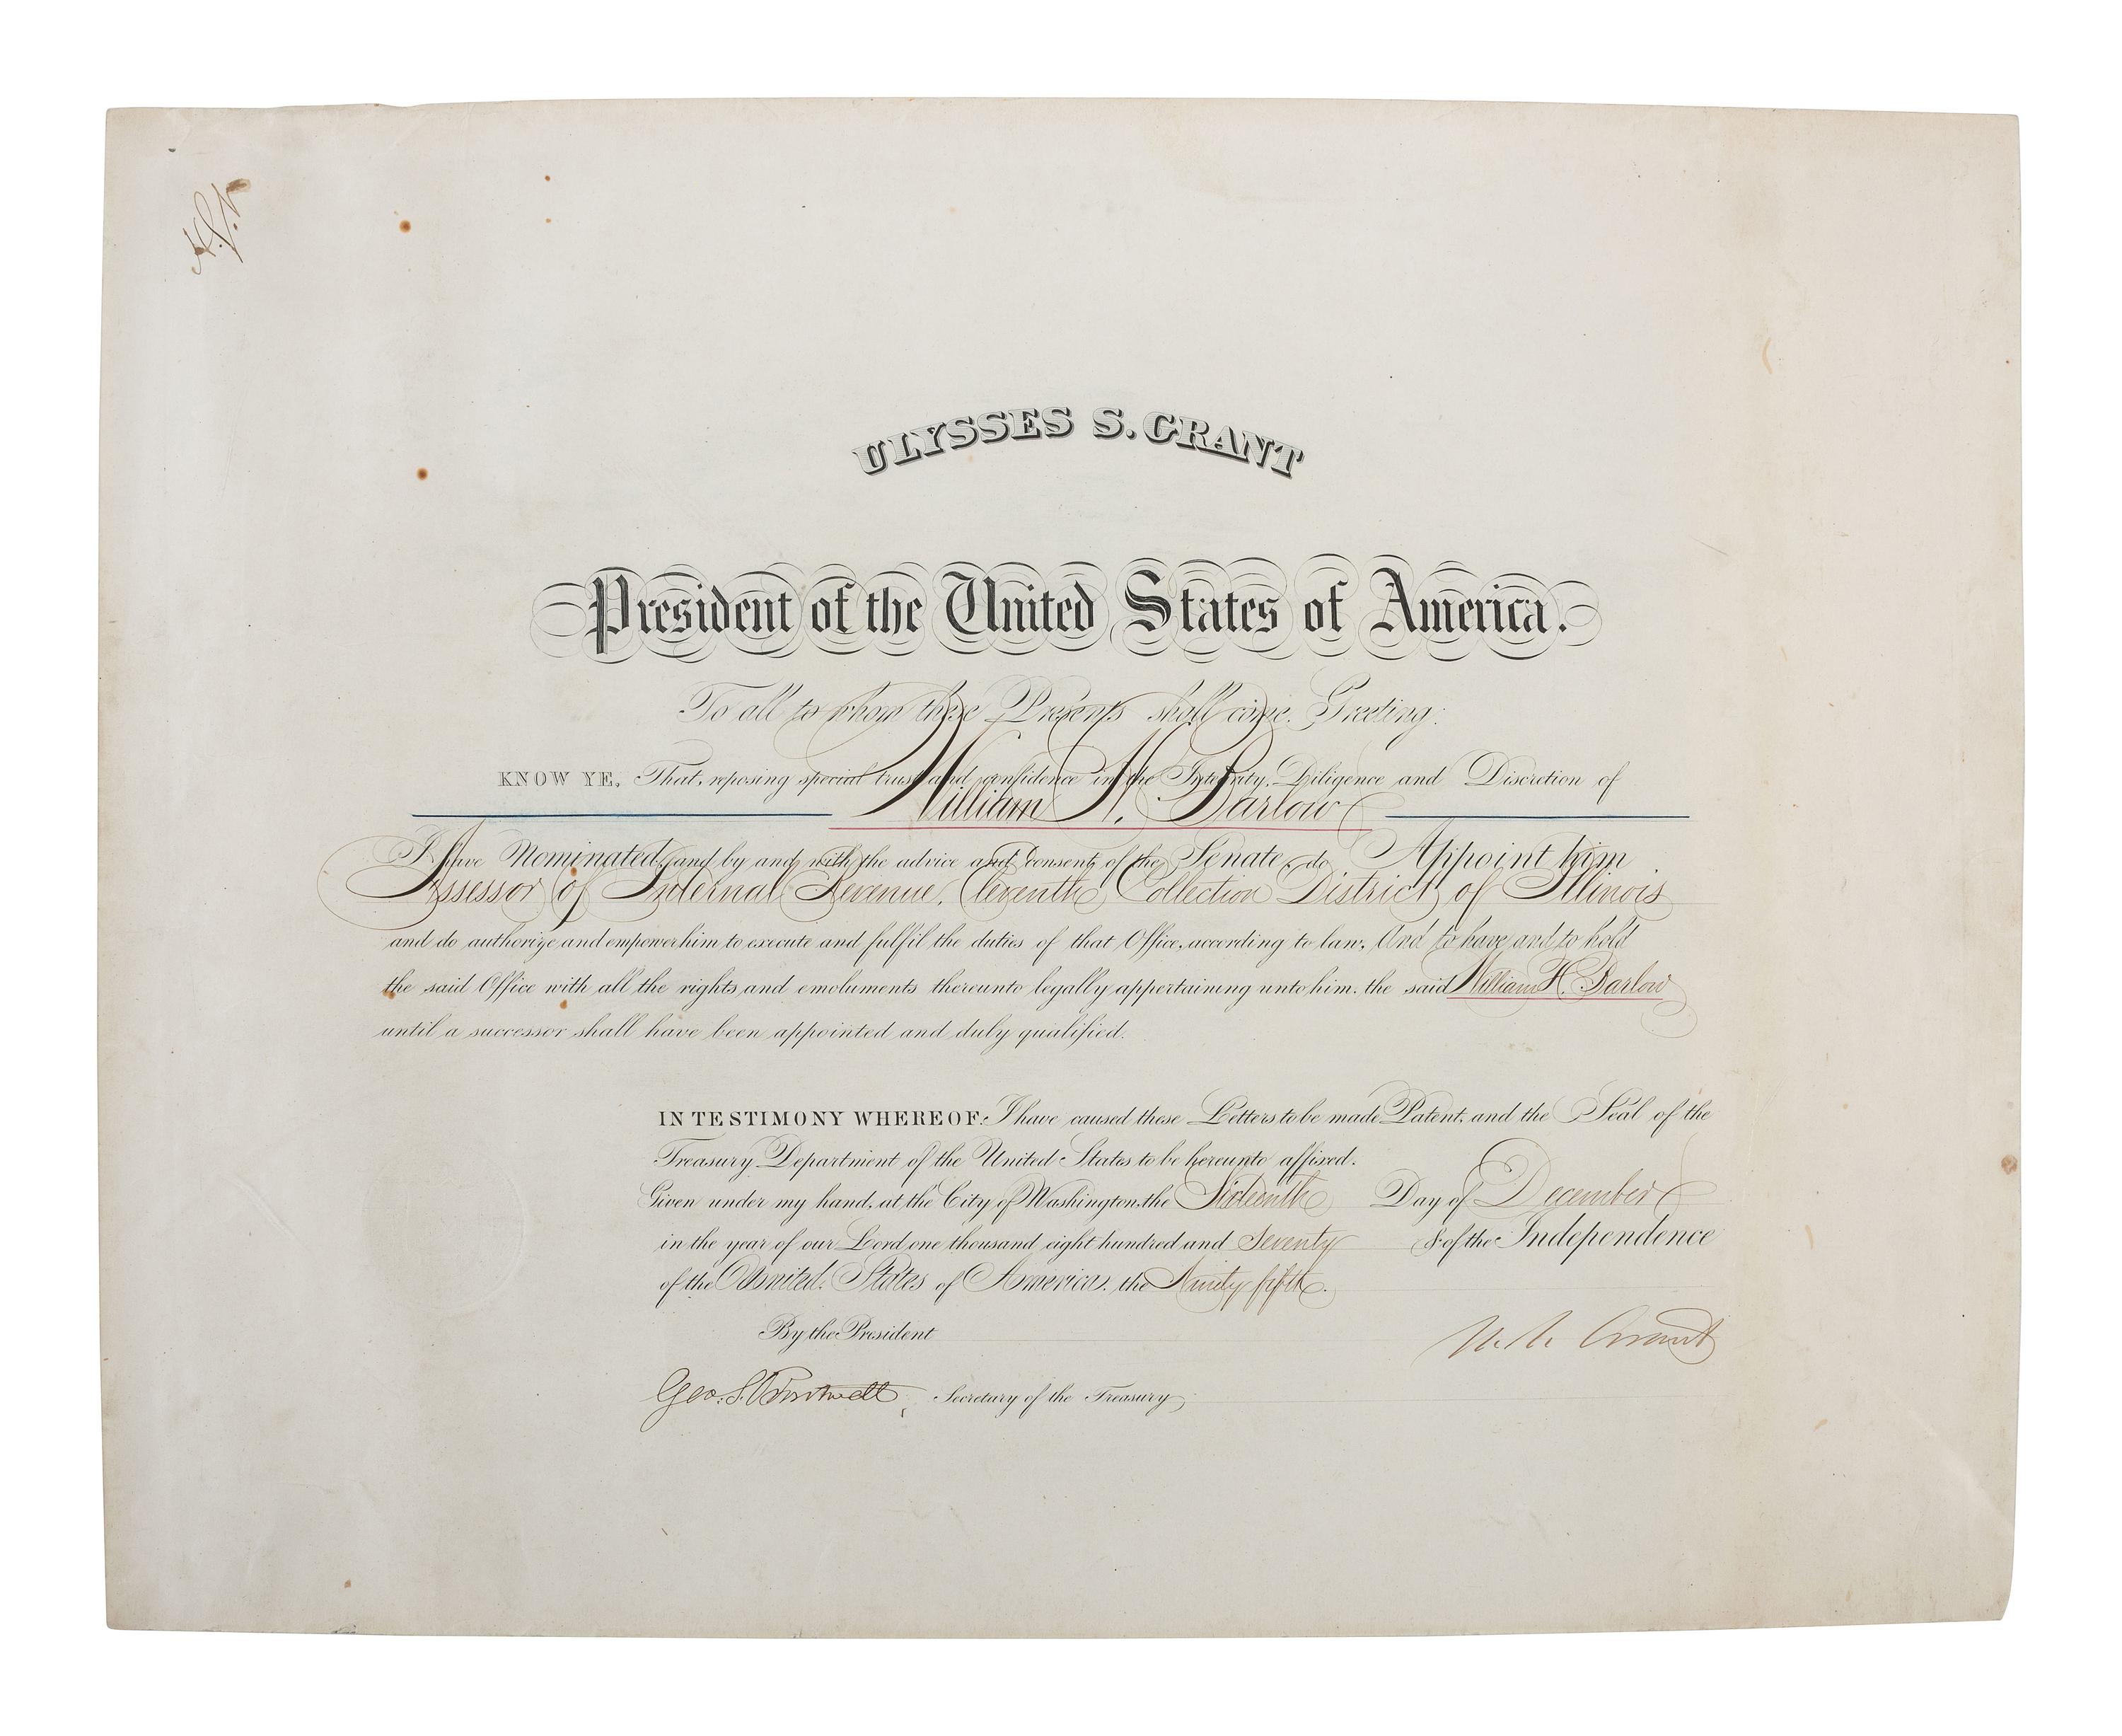 ULYSSES S. GRANT
President of the United States of America.
To all to whom these Presents shall come. Greeting:
KNOW YE, That, reposing special trust and confidence in the Integrity, Diligence and Discretion of
William H. Barlow
I have Nominated, and by and with the advice and consent of the Senate, do Appoint him
Assessor of Internal Revenue, Eleventh Collection District of Illinois
and do authorize and empower him to execute and fulfil the duties of that Office, according to law, And to have and to hold
the said Office with all the rights and emoluments thereunto legally appertaining unto him. the said William H. Barlow
until a successor shall have been appointed and duly qualified.
IN TESTIMONY WHEREOF: I have caused these Letters to be made Patent, and the Seal of the
Treasury Department of the United States to be hereunto affixed.
Given under my hand, at the City of Washington, the Sixteenth Day of December
in the year of our Lord one thousand eight hundred and Seventy & of the Independence
of the United States of America. the Ninety fifth.
By the President U. S. Grant
Geo. S. Boutwell, Secretary of the Treasury